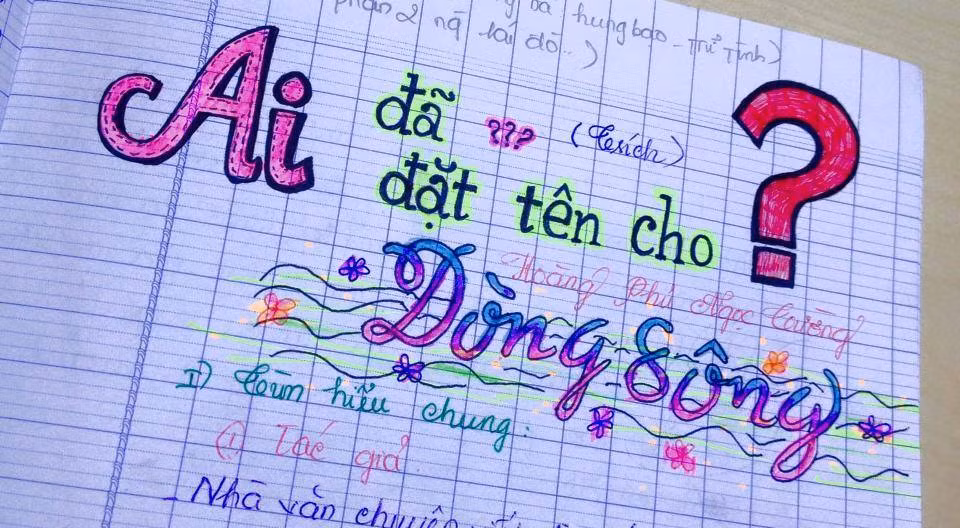 bà hung bạo - Trữ Tình)
phần 2 ng lái đò..)
Ai đã ??? (Trích)
đặt tên cho ?
Dòng Sông
Hoàng Phủ Ngọc Tường
I) Tìm hiểu chung:
① Tác giả
- Nhà văn chuyên